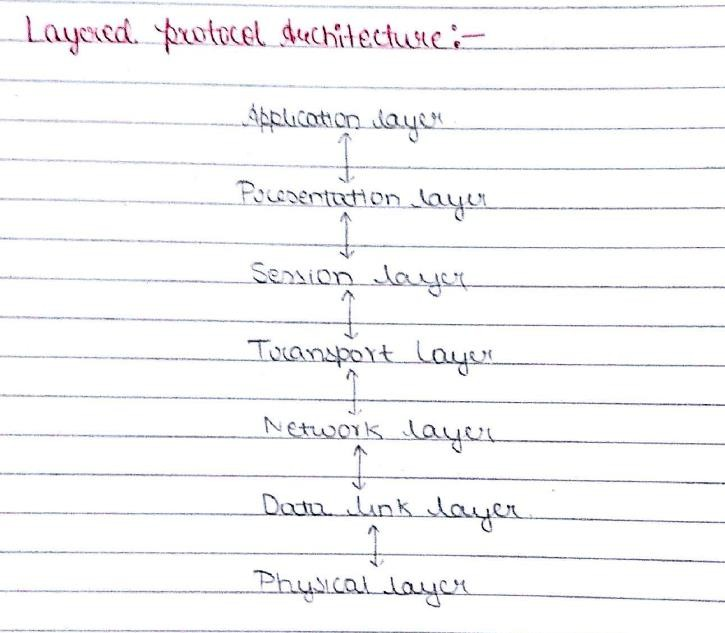 Layered protocol Architecture:-
Application layer
Presentation layer
Session layer
Transport layer
Network layer
Data link layer
Physical layer